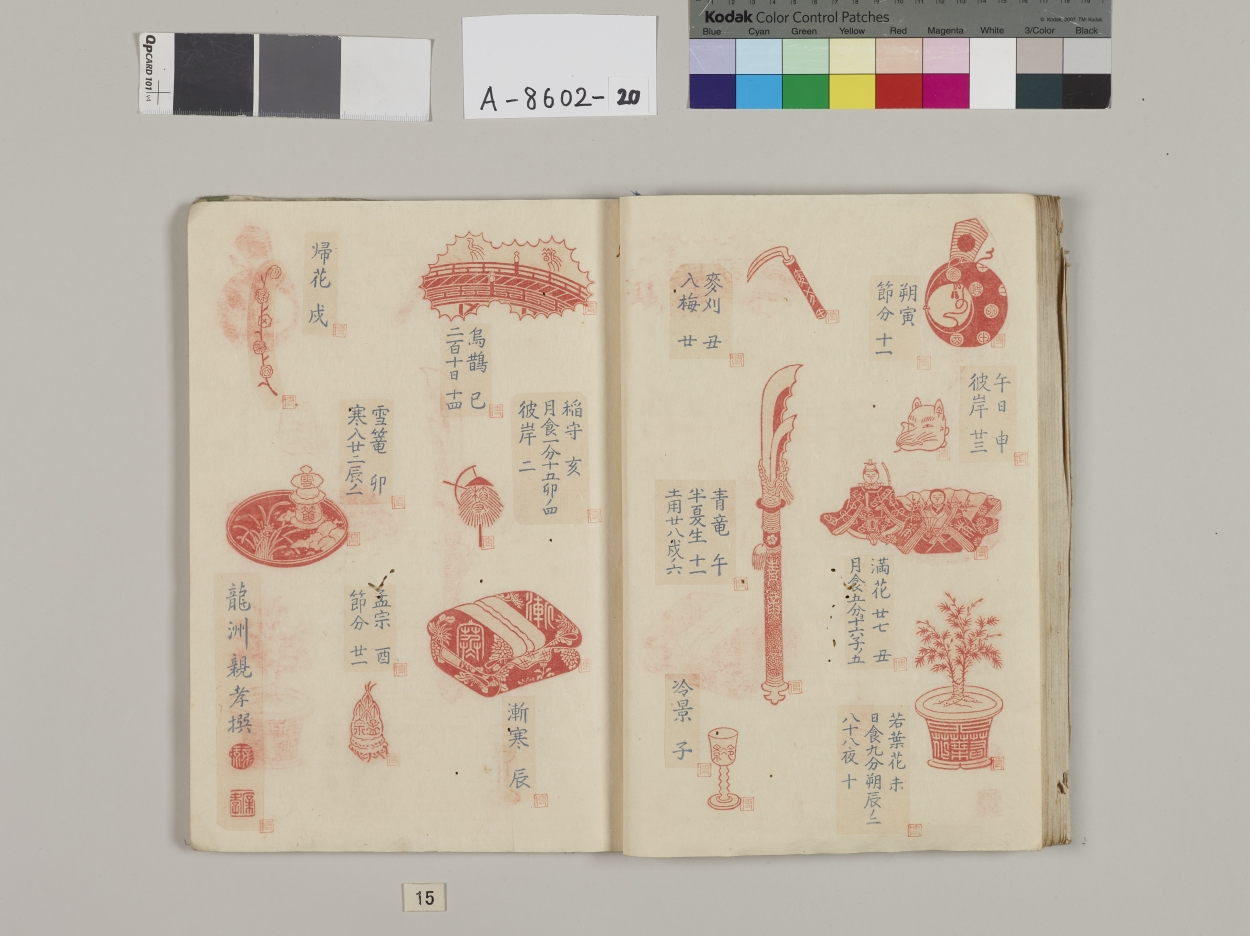 QpCARD 101
A-8602-20
Kodak Color Control Patches
Blue Cyan Green Yellow Red Magenta White 3/Color Black
朔寅
節分 十一
午日 申
彼岸 廿三
満花 廿七 丑
月食五分十六子ノ五
若葉花 未
日食九分朔辰ノ二
八十八夜 十
麥刈 丑
入梅 廿
青竜 午
半夏生 十一
土用廿八戌ノ六
冷景 子
烏鵲 巳
二百十日 十四
稲守 亥
月食一分十五卯ノ四
彼岸 二
漸寒 辰
帰花 戌
雪篭 卯
寒入廿二辰ノ二
孟宗 酉
節分 廿一
龍洲親孝撰
15